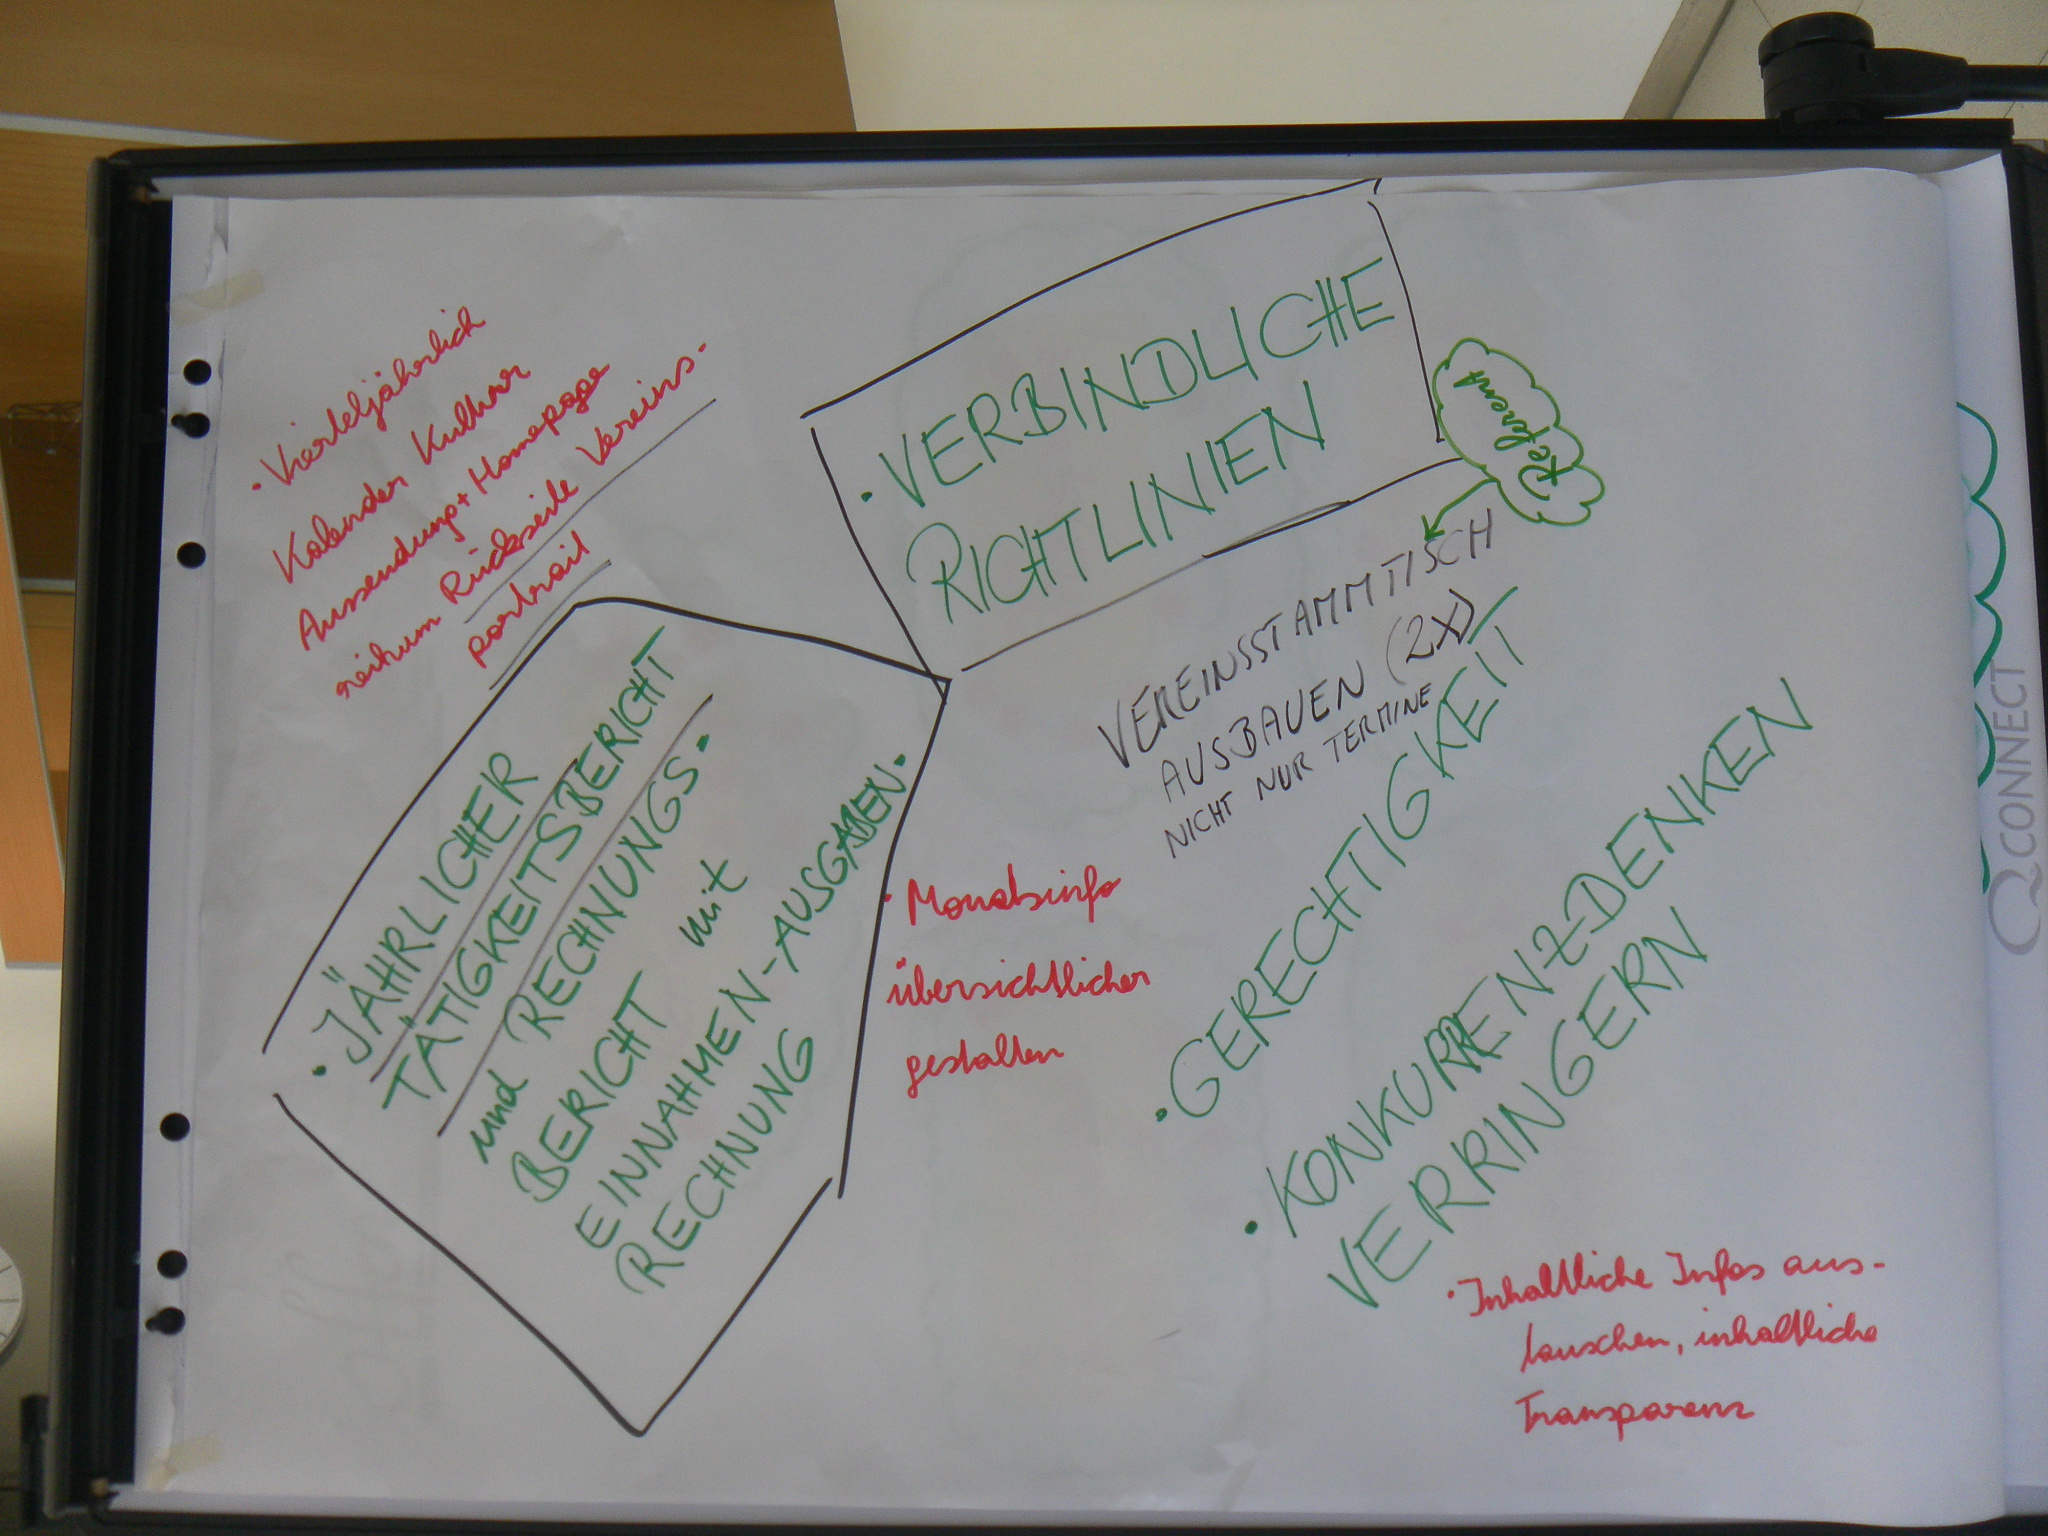 · Vierteljährlich
Kalender Kultur
Aussendung + Homepage
reihum Rückseite Vereins-
portrait
· VERBINDLICHE
RICHTLINIEN
Referent
VEREINSSTAMMTISCH
AUSBAUEN (2X)
NICHT NUR TERMINE
· JÄHRLICHER
TÄTIGKEITSBERICHT
und RECHNUNGS-
BERICHT mit
EINNAHMEN-AUSGABEN-
RECHNUNG
· Monatsinfo
übersichtlicher
gestalten
· GERECHTIGKEIT
· KONKURRENZDENKEN
VERRINGERN
· Inhaltliche Infos aus-
tauschen, inhaltliche
Transparenz
Q CONNECT